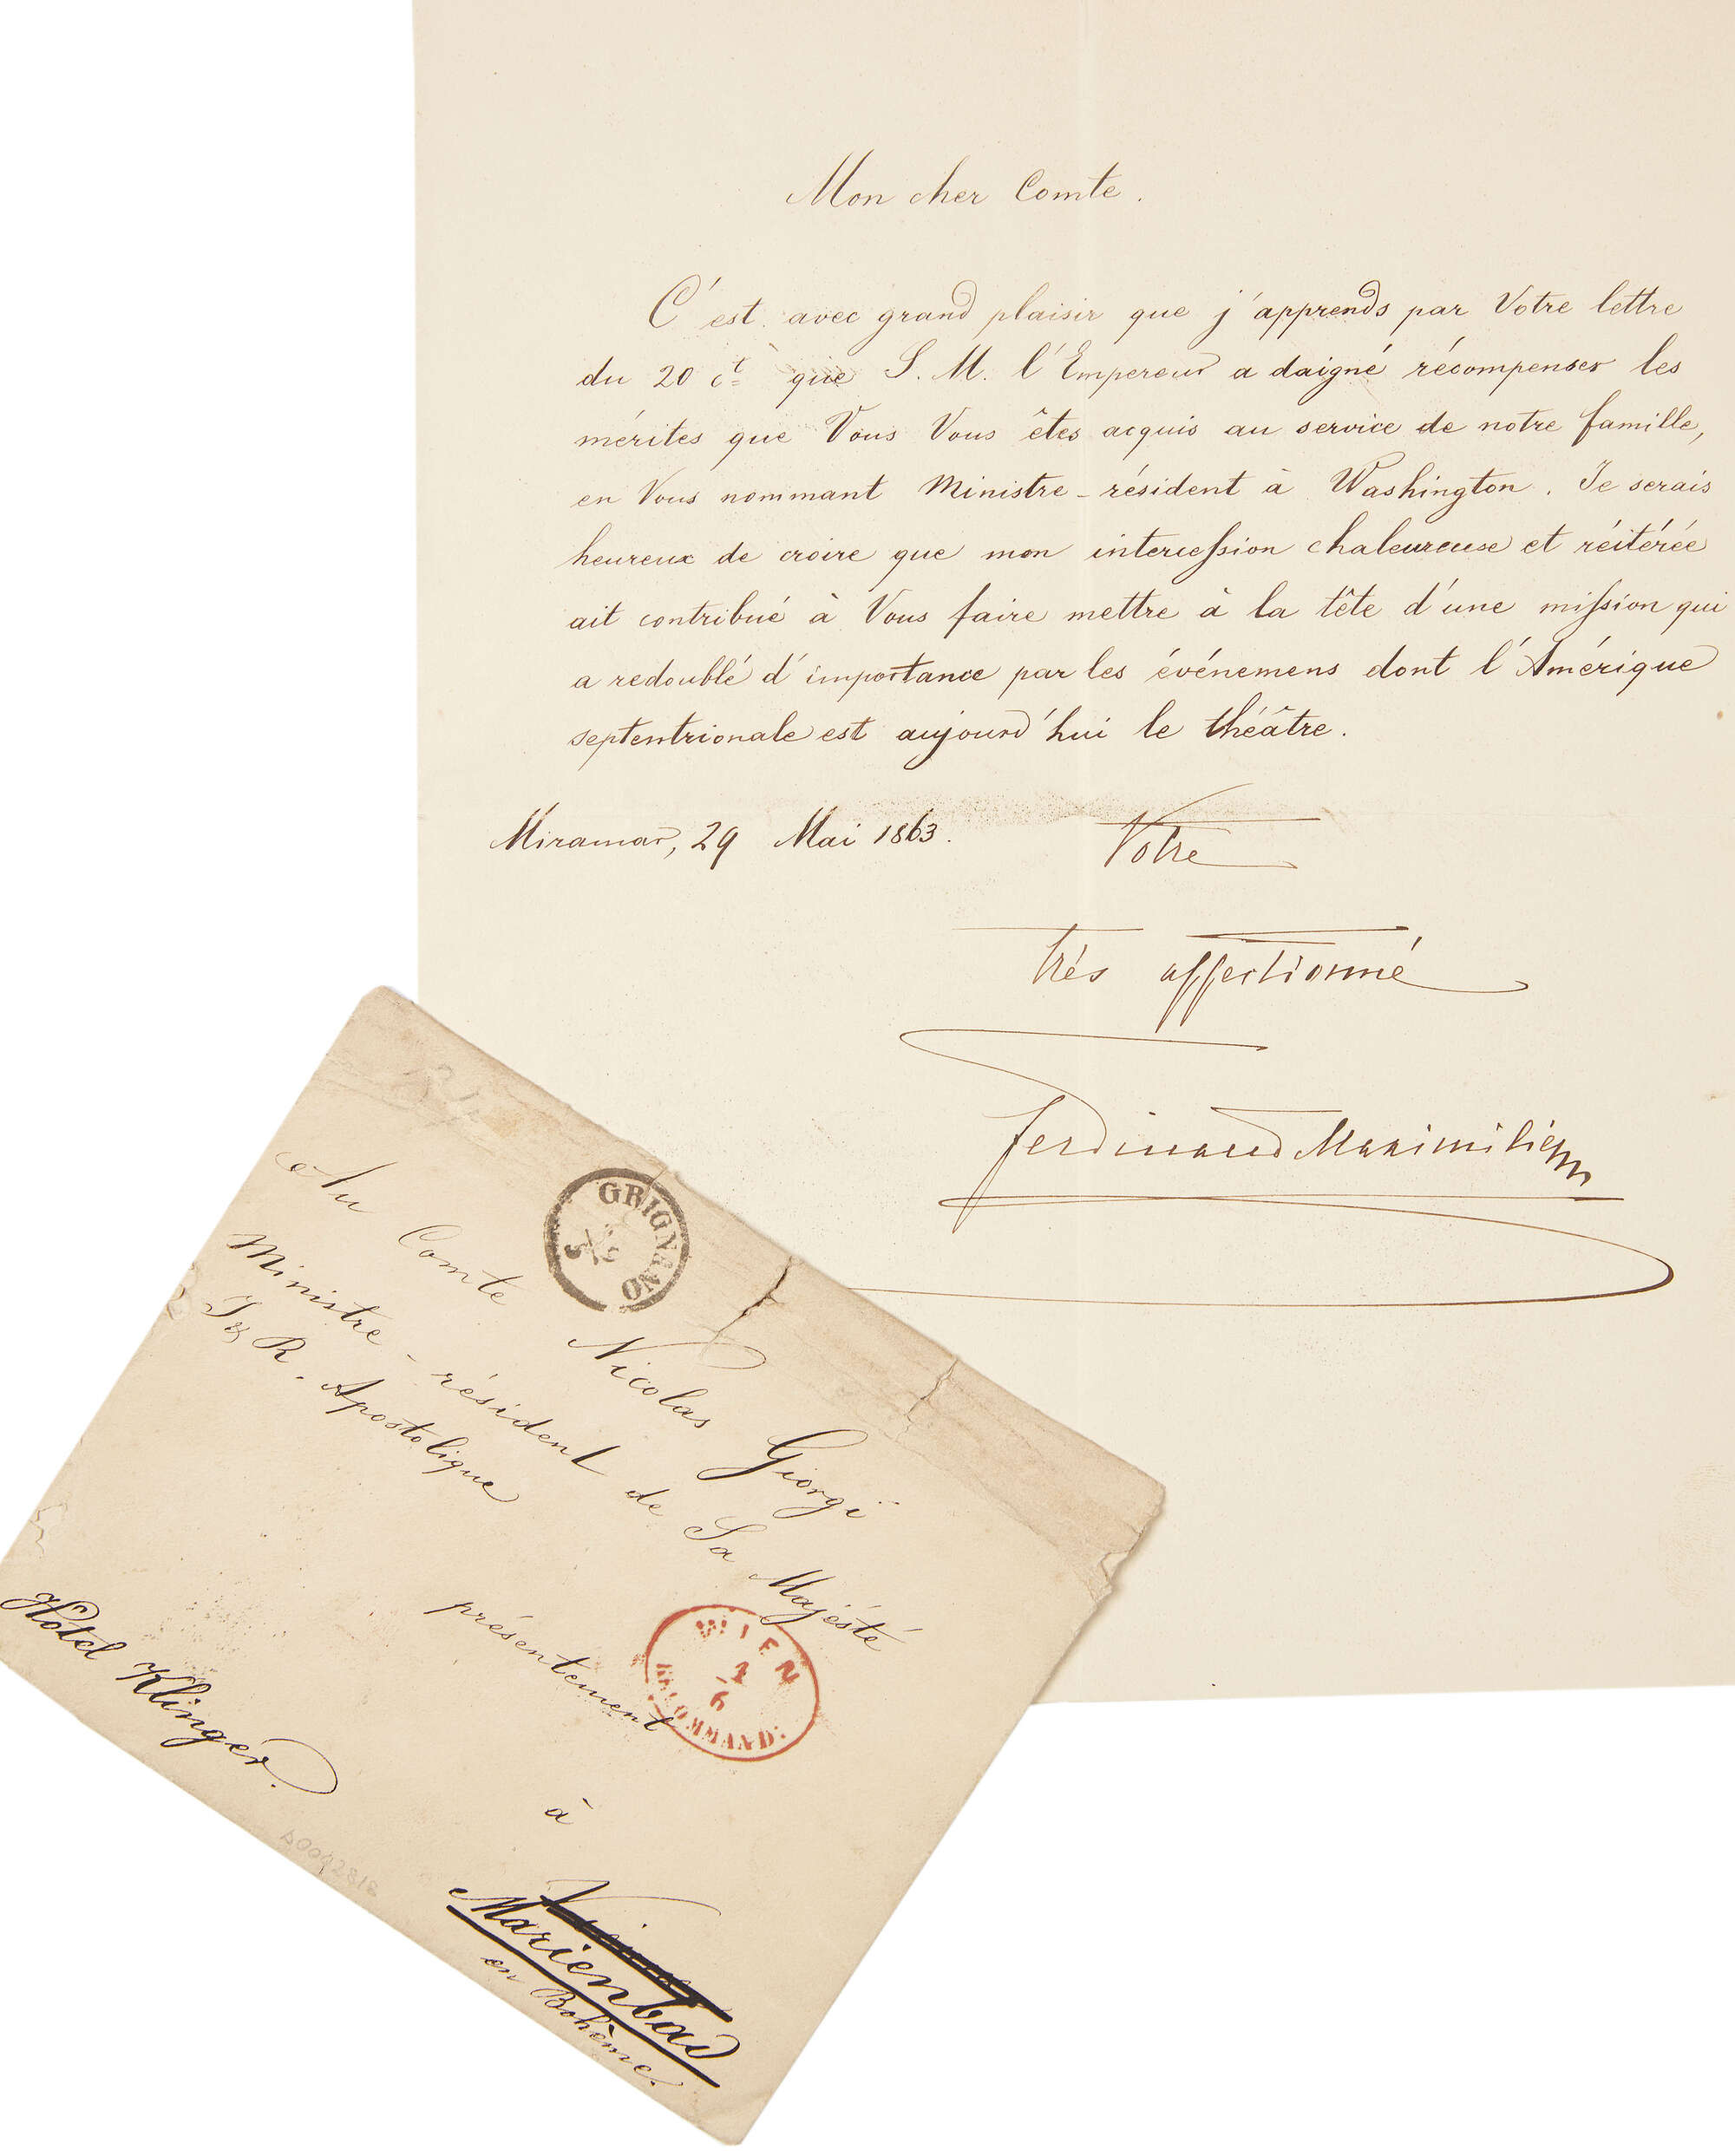 Mon cher Comte.
C'est avec grand plaisir que j'apprends par Votre lettre
du 20 ct que S. M. l'Empereur a daigné récompenser les
mérites que Vous Vous êtes acquis au service de notre famille,
en Vous nommant Ministre-résident à Washington. Je serais
heureux de croire que mon intercession chaleureuse et réitérée
ait contribué à Vous faire mettre à la tête d'une mission qui
a redoublé d'importance par les événemens dont l'Amérique
septentrionale est aujourd'hui le théâtre.
Miramar, 29 Mai 1863.
Votre
très affectionné
Ferdinand Maximilien
GRIGNANO
Au Comte Nicolas Giorgi
Ministre-résident de Sa Majésté
I & R. Apostolique
WIEN
1
6
RECOMMAND:
présentement
à
Marienbad
en Bohème.
Hôtel Klinger.